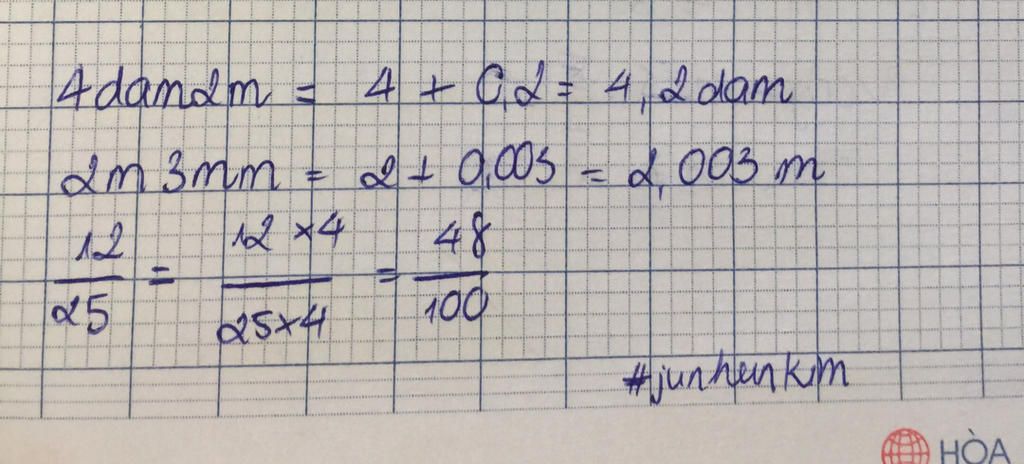 4dam2m = 4 + 0,2 = 4,2dam
2m 3mm = 2 + 0,003 = 2,003 m
12/25 = 12 ×4/25×4 = 48/100
#junhunkim
HÒA